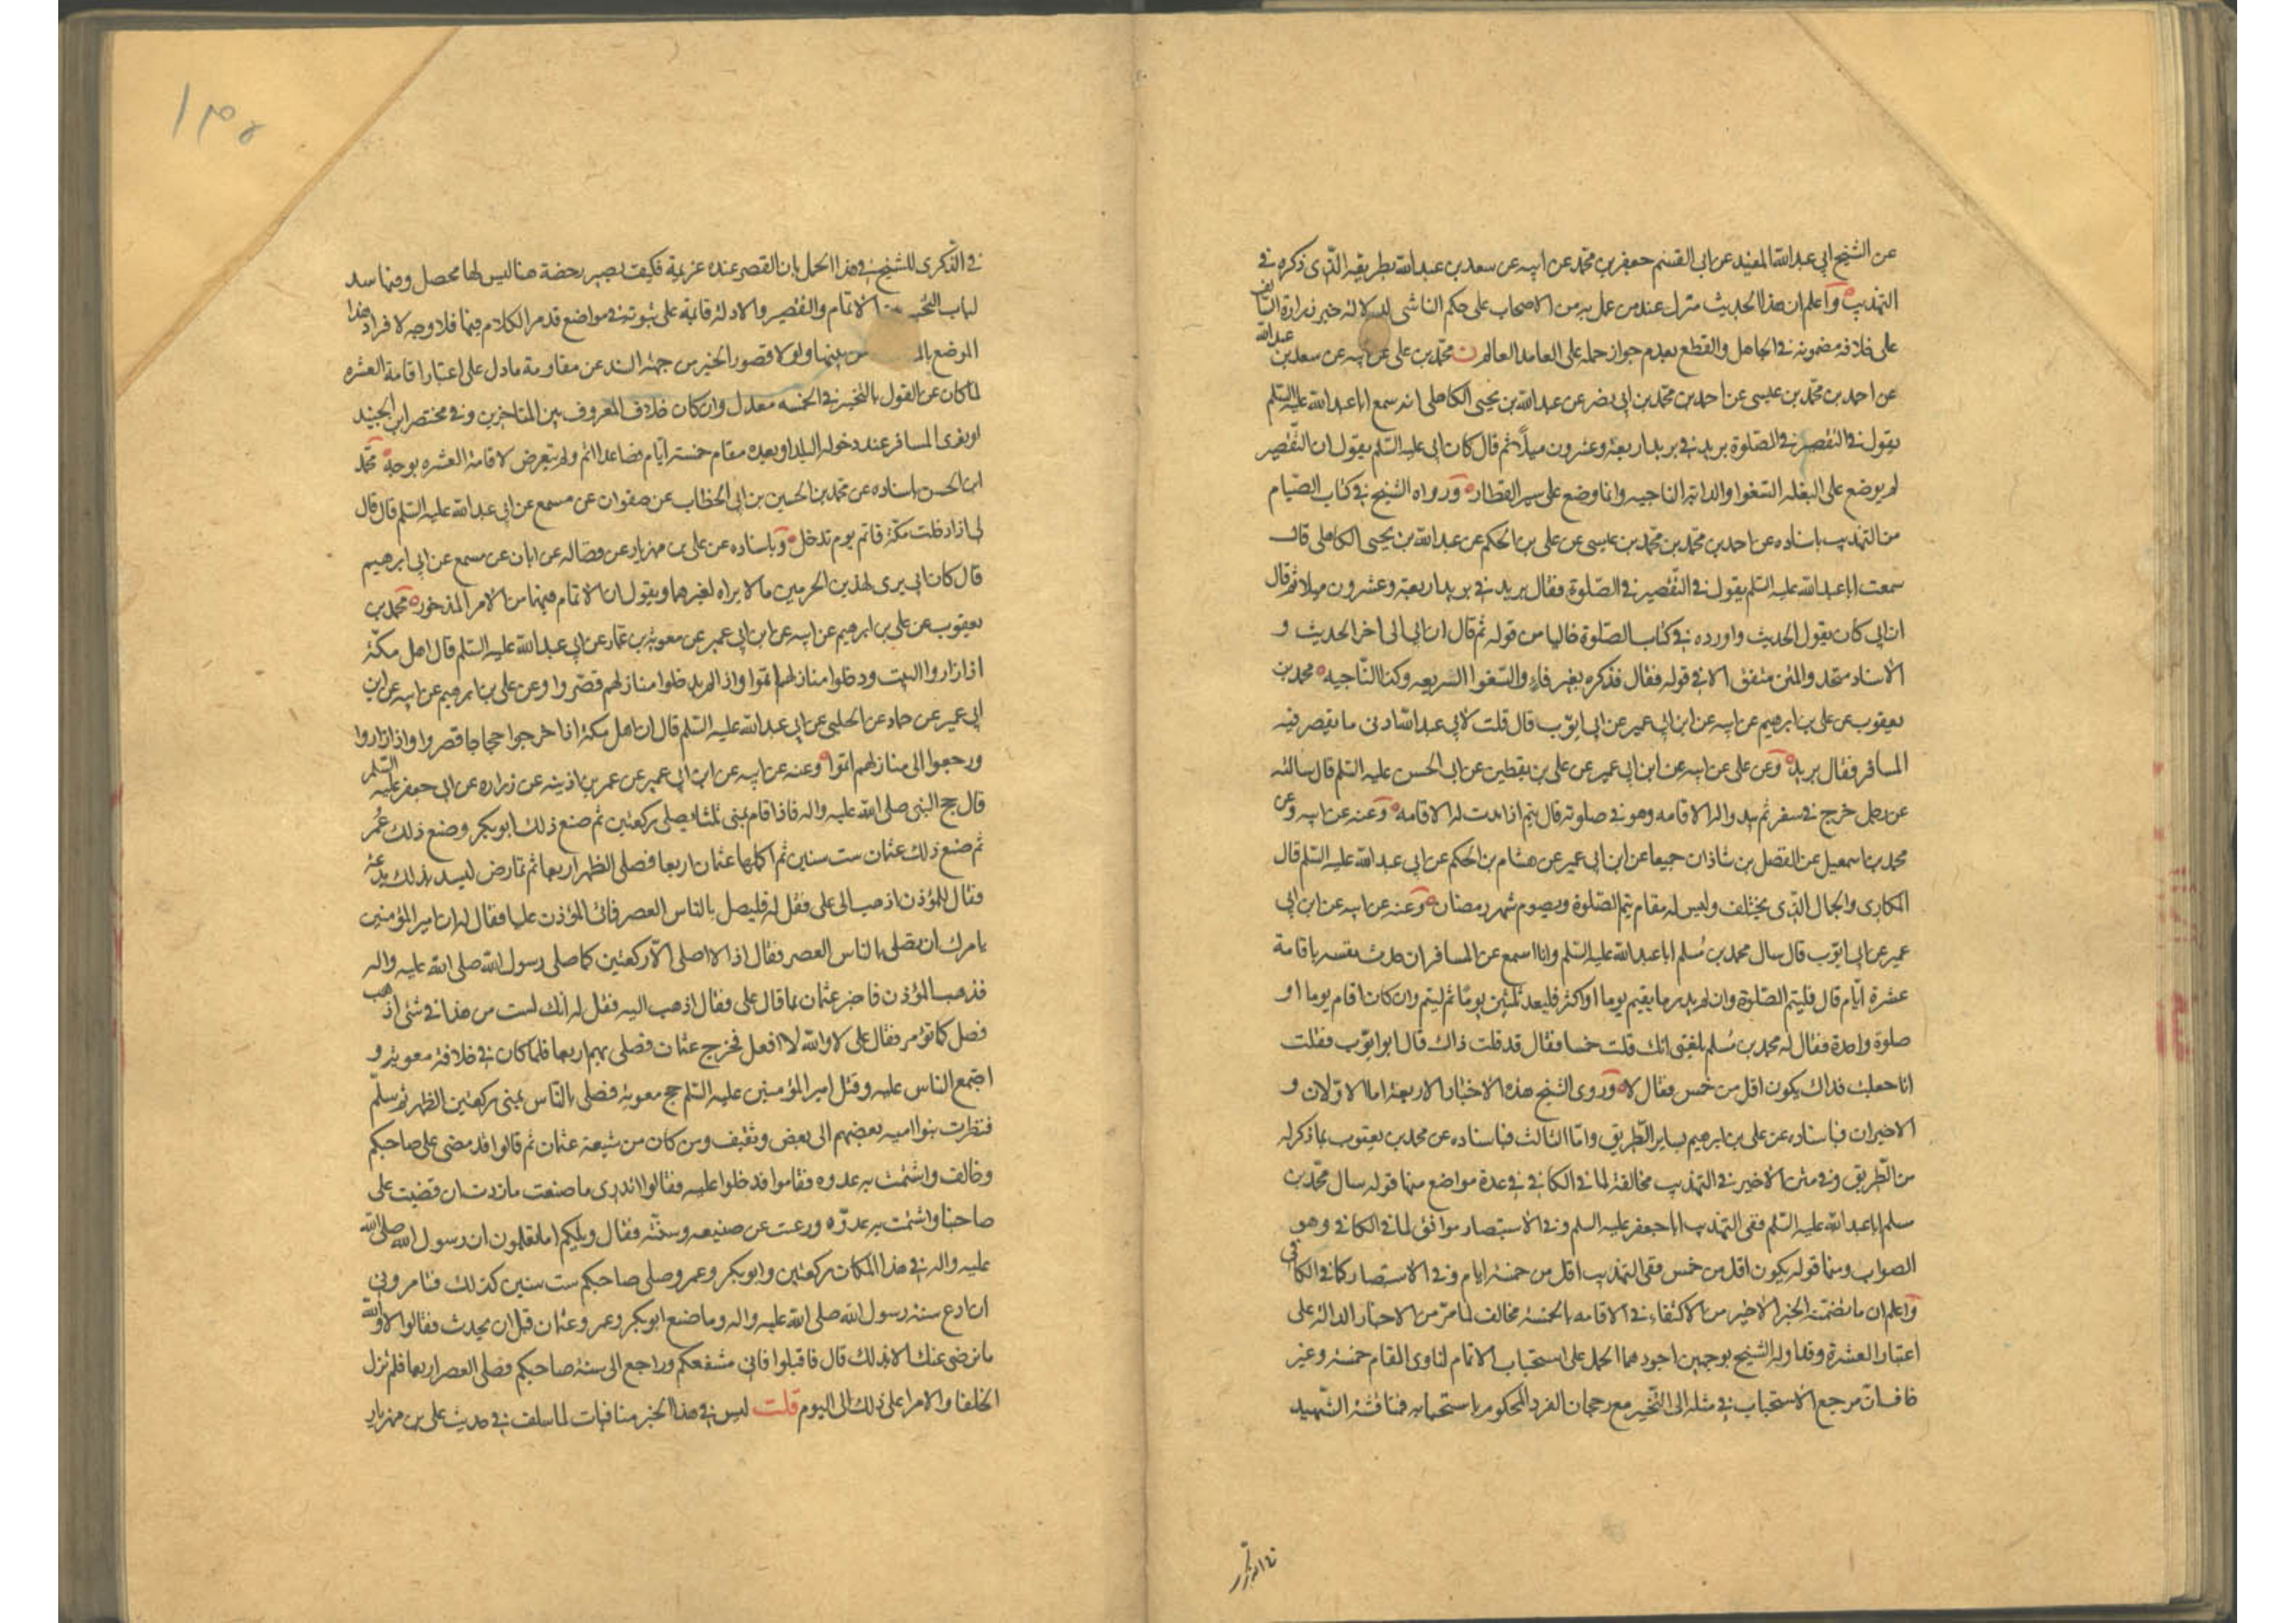 عن الشيخ ابي عبد الله المفيد عن ابي القسم جعفر بن محمد عن ابيه عن سعد بن عبد الله بطريقه الذي ذكره في
التهذيب واعلم ان هذا الحديث منزل عند من عمل به من الاصحاب على حكم الناسي لدلالة خبر زرارة السالف
على خلاف مضمونه في الجاهل والقطع بعدم جواز حمله على العامد العالم ن محمد بن علي عن ابيه عن سعد بن عبد الله
عن احمد بن محمد بن عيسى عن احمد بن محمد بن ابي نصر عن عبد الله بن يحيى الكاهلي انه سمع ابا عبد الله عليه السلم
يقول في التقصير في الصلوة بريد في بريد اربعة وعشرون ميلا ثم قال كان ابي عليه السلم يقول ان التقصير
لم يوضع على البغلة السفوا والدابة الناجيه وانما وضع على سير القطار ورواه الشيخ في كتاب الصيام
من التهذيب باسناده عن احمد بن محمد بن محمد بن عيسى عن علي بن الحكم عن عبد الله بن يحيى الكاهلي قال
سمعت ابا عبد الله عليه السلم يقول في التقصير في الصلوة فقال بريد في بريد اربعة وعشرون ميلا ثم قال
ان ابي كان يقول الحديث واورده في كتاب الصلوة خاليا من قوله ثم قال ان ابي الى اخر الحديث و
الاسناد متحد والمتن متفق الا في قوله فقال فذكره بغير فاء والسفوا السريعه وكذا الناجيه محمد بن
يعقوب عن علي بن ابرهيم عن ابيه عن ابن ابي عمير عن ابي ايوب قال قلت لابي عبد الله ادنى ما يقصر فيه
المسافر فقال بريد وعن علي عن ابيه عن ابن ابي عمير عن علي بن يقطين عن ابي الحسن عليه السلم قال سالته
عن رجل خرج في سفر ثم يبدو له الاقامه وهو في صلوته قال يتم اذا بدت له الاقامه وعنه عن ابيه وعن
محمد بن اسمعيل عن الفضل بن شاذان جميعا عن ابن ابي عمير عن هشام بن الحكم عن ابي عبد الله عليه السلم قال
المكاري والجمال الذي يختلف وليس له مقام يتم الصلوة ويصوم شهر رمضان وعنه عن ابيه عن ابن ابي
عمير عن ابي ايوب قال سال محمد بن مسلم ابا عبد الله عليه السلم وانا اسمع عن المسافر ان حدث نفسه باقامة
عشرة ايام قال فليتم الصلوة وان لم يدر ما يقيم يوما او اكثر فليعد ثلثين يوما ثم ليتم وان كان اقام يوما او
صلوة واحدة فقال له محمد بن مسلم بلغني انك قلت خمسا فقال قد قلت ذاك قال ابو ايوب فقلت
انا جعلت فداك يكون اقل من خمس فقال لا وروى الشيخ هذه الاخبار الاربعة اما الاولان و
الاخيران فباسناده عن علي بن ابرهيم بساير الطريق واما الثالث فباسناده عن محمد بن يعقوب بما ذكر له
من الطريق وفي متن الاخير في التهذيب مخالفة لما في الكافي في عدة مواضع منها قوله سال محمد بن
مسلم ابا عبد الله عليه السلم ففي التهذيب ابا جعفر عليه السلم وفي الاستبصار موافق لما في الكافي وهو
الصواب ومنها قوله يكون اقل من خمس ففي التهذيب اقل من خمسة ايام وفي الاستبصار كما في الكافي
واعلم ان ما تضمنه الخبر الاخير من الاكتفاء في الاقامه بالخمسة مخالف لما مر من الاخبار الدالة على
اعتبار العشرة وقد اوله الشيخ بوجهين اجودهما الحمل على استحباب الاتمام لناوي المقام خمسة وغير
خاف ان مرجع الاستحباب في مثله الى التخيير مع رجحان الفرد المحكوم باستحبابه فمناقشة الشهيد
في الذكرى للشيخ في هذا الحمل بان القصر عنده عزيمة فكيف يصير رخصة هنا ليس لها محصل وفيها سد
لباب الاتمام والتقصير والادلة قائمة على ثبوته في مواضع قد مر الكلام فيها فلا وجه لافراد هذا
الموضع بينها ولولا قصور الخبر من جهة السند عن مقاومة ما دل على اعتبار اقامة العشره
لما كان عن القول بالتخيير في الخمسه معدل وان كان خلاف المعروف بين المتاخرين وفي مختصر ابن الجنيد
لو نوى المسافر عند دخوله البلد او بعده مقام خمسة ايام فصاعدا اتم ولم يتعرض لاقامة العشره بوجه محمد
ابن الحسن باسناده عن محمد بن الحسين بن ابي الخطاب عن صفوان عن مسمع عن ابي عبد الله عليه السلم قال قال
لي اذا دخلت مكة فاتم يوم تدخل وباسناده عن علي بن مهزيار عن فضاله عن ابان عن مسمع عن ابي ابرهيم
قال كان ابي يرى لهذين الحرمين ما لا يراه لغيرهما ويقول ان الاتمام فيهما من الامر المذخور محمد بن
يعقوب عن علي بن ابرهيم عن ابيه عن ابن ابي عمير عن معوية بن عمار عن ابي عبد الله عليه السلم قال اهل مكة
اذا زاروا البيت ودخلوا منازلهم اتموا واذا لم يدخلوا منازلهم قصروا وعن علي بن ابرهيم عن ابيه عن ابن
ابي عمير عن حماد عن الحلبي عن ابي عبد الله عليه السلم قال ان اهل مكة اذا خرجوا حجاجا قصروا واذا زاروا
ورجعوا الى منازلهم اتموا وعنه عن ابيه عن ابن ابي عمير عن عمر بن اذينه عن زراره عن ابي جعفر عليه السلم
قال حج النبي صلى الله عليه واله فاذا قام بمنى ثلثا يصلي ركعتين ثم صنع ذلك ابو بكر وصنع ذلك عمر
ثم صنع ذلك عثمان ست سنين ثم اكملها عثمان اربعا فصلى الظهر اربعا ثم تمارض ليسد بذلك بدعته
فقال للمؤذن اذهب الى علي فقل له فليصل بالناس العصر فاتى المؤذن عليا فقال له ان امير المؤمنين
يامرك ان تصلي بالناس العصر فقال اذا لا اصلي الا ركعتين كما صلى رسول الله صلى الله عليه واله
فذهب المؤذن فاخبر عثمان بما قال علي فقال اذهب اليه فقل له انك لست من هذا في شئ اذهب
فصل كما تؤمر فقال علي لا والله لا افعل فخرج عثمان فصلى بهم اربعا فلما كان في خلافة معوية و
اجتمع الناس عليه وقتل امير المؤمنين عليه السلم حج معوية فصلى بالناس بمنى ركعتين الظهر ثم سلم
فنظرت بنوا اميه بعضهم الى بعض وثقيف ومن كان من شيعة عثمان ثم قالوا قد مضى على صاحبكم
وخالف واشمت به عدوه فقاموا فدخلوا عليه فقالوا اتدري ما صنعت ما زدت ان قضيت على
صاحبنا واشمت به عدوه ورغبت عن صنيعه وسنته فقال ويلكم اما تعلمون ان رسول الله صلى الله
عليه واله في هذا المكان ركعتين وابو بكر وعمر وصلى صاحبكم ست سنين كذلك فتامروني
ان ادع سنة رسول الله صلى الله عليه واله وما صنع ابو بكر وعمر وعثمان قبل ان يحدث فقالوا لا والله
ما نرضى عنك الا بذلك قال فاقبلوا فاني مشفعكم وراجع الى سنة صاحبكم فصلى العصر اربعا فلم تزل
الخلفا والامرا على ذلك الى اليوم قلت ليس في هذا الخبر منافات لما سلف في حديث علي بن مهزيار